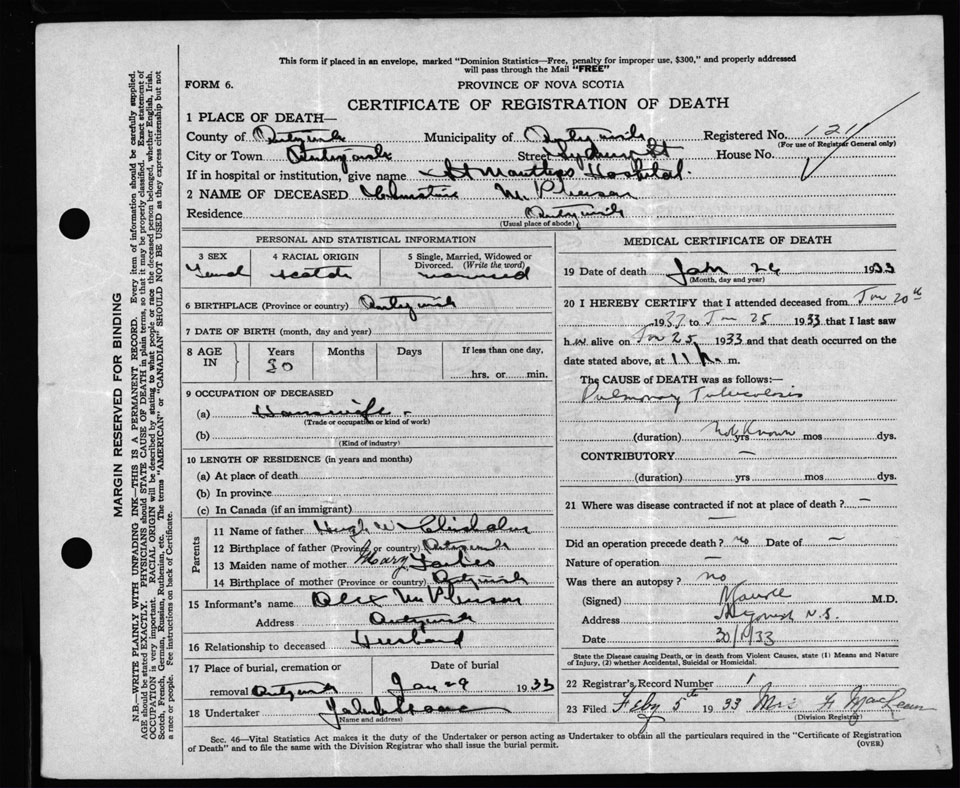 This form if placed in an envelope, marked "Dominion Statistics—Free, penalty for improper use, $300," and properly addressed
will pass through the Mail "FREE"
FORM 6.
PROVINCE OF NOVA SCOTIA
CERTIFICATE OF REGISTRATION OF DEATH
1 PLACE OF DEATH—
County of Antigonish Municipality of Antigonish Registered No. 121
(For use of Registrar General only)
City or Town Antigonish Street House No.
If in hospital or institution, give name St Marthas Hospital.
2 NAME OF DECEASED Christine McPherson
Residence Antigonish
(Usual place of abode)
PERSONAL AND STATISTICAL INFORMATION
3 SEX 4 RACIAL ORIGIN 5 Single, Married, Widowed or
Divorced. (Write the word)
Femal Scotch married
6 BIRTHPLACE (Province or country) Antigonish
7 DATE OF BIRTH (month, day and year)
8 AGE IN Years Months Days If less than one day,
50 hrs. or min.
9 OCCUPATION OF DECEASED
(a) Housewife
(Trade or occupation or kind of work)
(b)
(Kind of industry)
10 LENGTH OF RESIDENCE (in years and months)
(a) At place of death
(b) In province
(c) In Canada (if an immigrant)
Parents
11 Name of father Hugh W Chisholm
12 Birthplace of father (Province or country) Antigonish
13 Maiden name of mother Mary Forbes
14 Birthplace of mother (Province or country) Antigonish
15 Informant's name Alex McPherson
Address Antigonish
16 Relationship to deceased Husband
17 Place of burial, cremation or Date of burial
removal Antigonish Jan 29 1933
18 Undertaker
(Name and address)
MEDICAL CERTIFICATE OF DEATH
19 Date of death Jan 26 1933
(Month, day and year)
20 I HEREBY CERTIFY that I attended deceased from Jan 20th
1933 to Jan 25 1933 that I last saw
h er alive on Jan 25 1933 and that death occurred on the
date stated above, at 11 m.
The CAUSE OF DEATH was as follows:—
Pulmonary Tuberculosis
(duration) Not Known yrs mos dys.
CONTRIBUTORY —
(duration) yrs mos dys.
21 Where was disease contracted if not at place of death? —
Did an operation precede death? no Date of —
Nature of operation —
Was there an autopsy? no
(Signed) M.D.
Address Antigonish N.S.
Date 30/1/33
State the Disease causing Death, or in death from Violent Causes, state (1) Means and Nature
of Injury, (2) whether Accidental, Suicidal or Homicidal.
22 Registrar's Record Number 1
23 Filed Feby 5th 1933 Mrs F MacLean
(Division Registrar)
Sec. 46—Vital Statistics Act makes it the duty of the Undertaker or person acting as Undertaker to obtain all the particulars required in the "Certificate of Registration
of Death" and to file the same with the Division Registrar who shall issue the burial permit. (OVER)
MARGIN RESERVED FOR BINDING
N.B.—WRITE PLAINLY WITH UNFADING INK—THIS IS A PERMANENT RECORD. Every item of information should be carefully supplied.
AGE should be stated EXACTLY. PHYSICIANS should STATE CAUSE OF DEATH in plain terms, so that it may be properly classified. Exact statement of
OCCUPATION is very important. RACIAL ORIGIN will be described by stating to what people or race the deceased person belonged, whether English, Irish,
Scotch, French, German, Russian, Ruthenian, etc. The terms "AMERICAN" or "CANADIAN" SHOULD NOT BE USED as they express citizenship but not
a race or people. Fee instructions on back of Certificate.